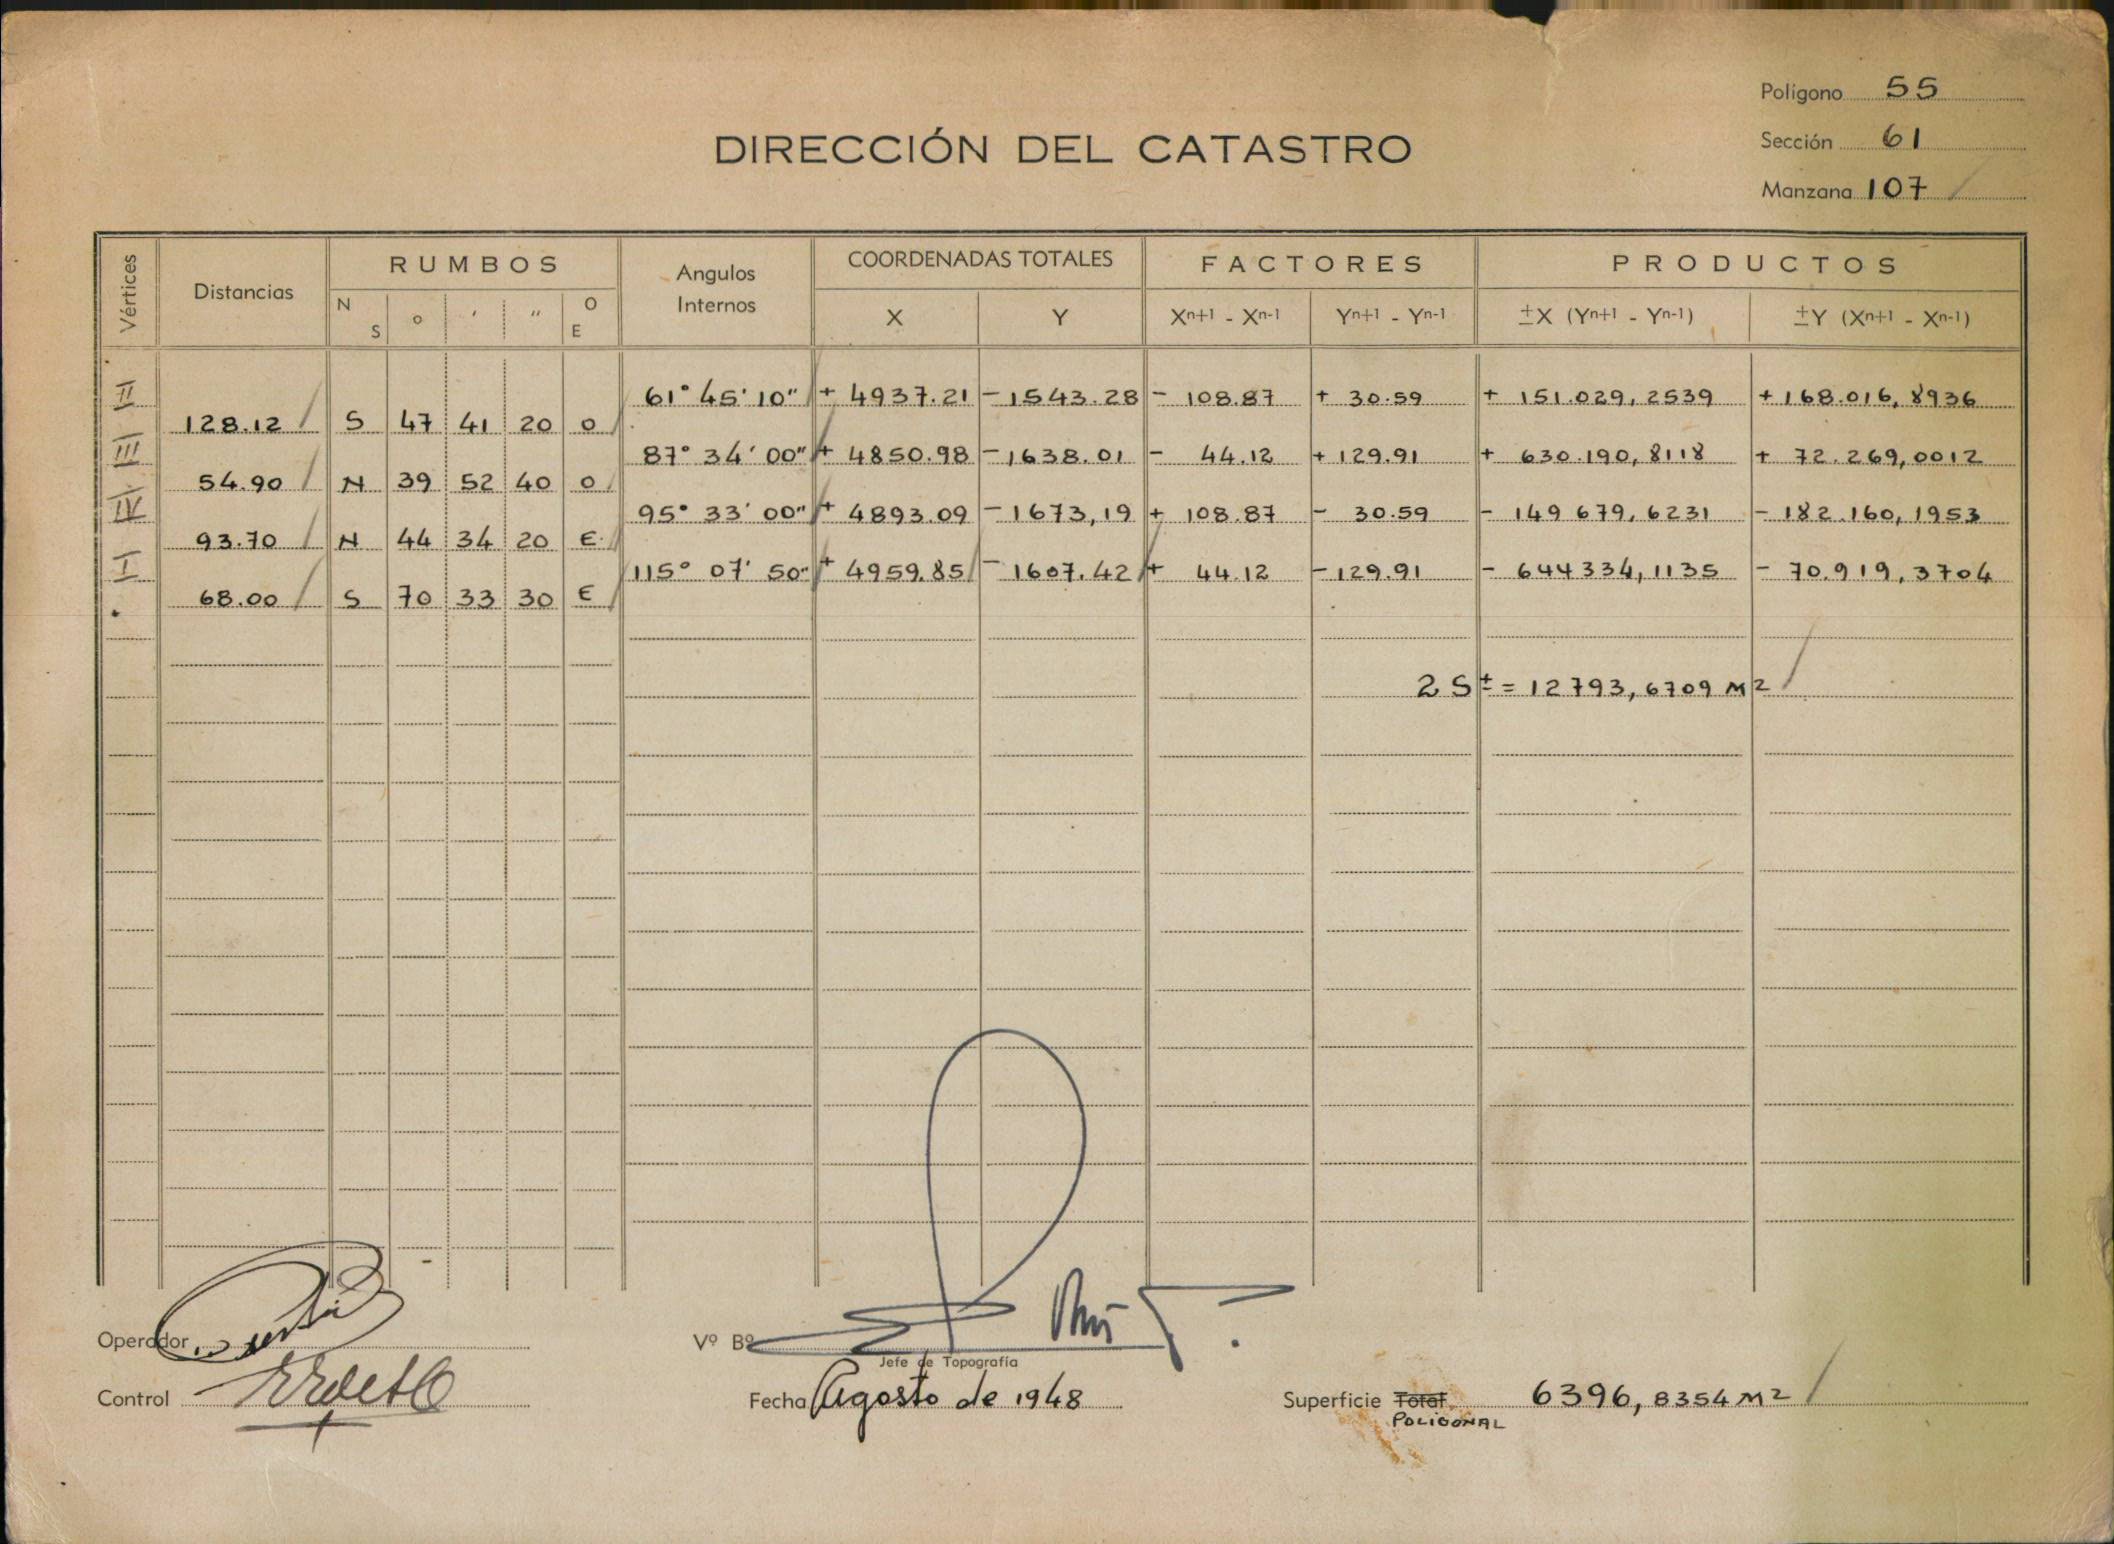 Polígono 55
Sección 61
Manzana 107
DIRECCIÓN DEL CATASTRO
Vértices
Distancias
RUMBOS
N S ° ′ ″ O E
Angulos
Internos
COORDENADAS TOTALES
X Y
FACTORES
Xn+1 - Xn-1 Yn+1 - Yn-1
PRODUCTOS
±X (Yn+1 - Yn-1) ±Y (Xn+1 - Xn-1)
II 61° 45' 10" + 4937.21 - 1543.28 - 108.87 + 30.59 + 151.029,2539 + 168.016,8936
128.12 S 47 41 20 O
III 87° 34' 00" + 4850.98 - 1638.01 - 44.12 + 129.91 + 630.190,8118 + 72.269,0012
54.90 N 39 52 40 O
IV 95° 33' 00" + 4893.09 - 1673,19 + 108.87 - 30.59 - 149 679,6231 - 182.160,1953
93.70 N 44 34 20 E
I 115° 07' 50" + 4959.85 - 1607.42 + 44.12 - 129.91 - 644334,1135 - 70.919,3704
68.00 S 70 33 30 E
2 S ± = 12793,6709 M2
Operador
Vº Bº
Jefe de Topografía
Control
Fecha Agosto de 1948
Superficie Total 6396,8354 M2
POLIGONAL